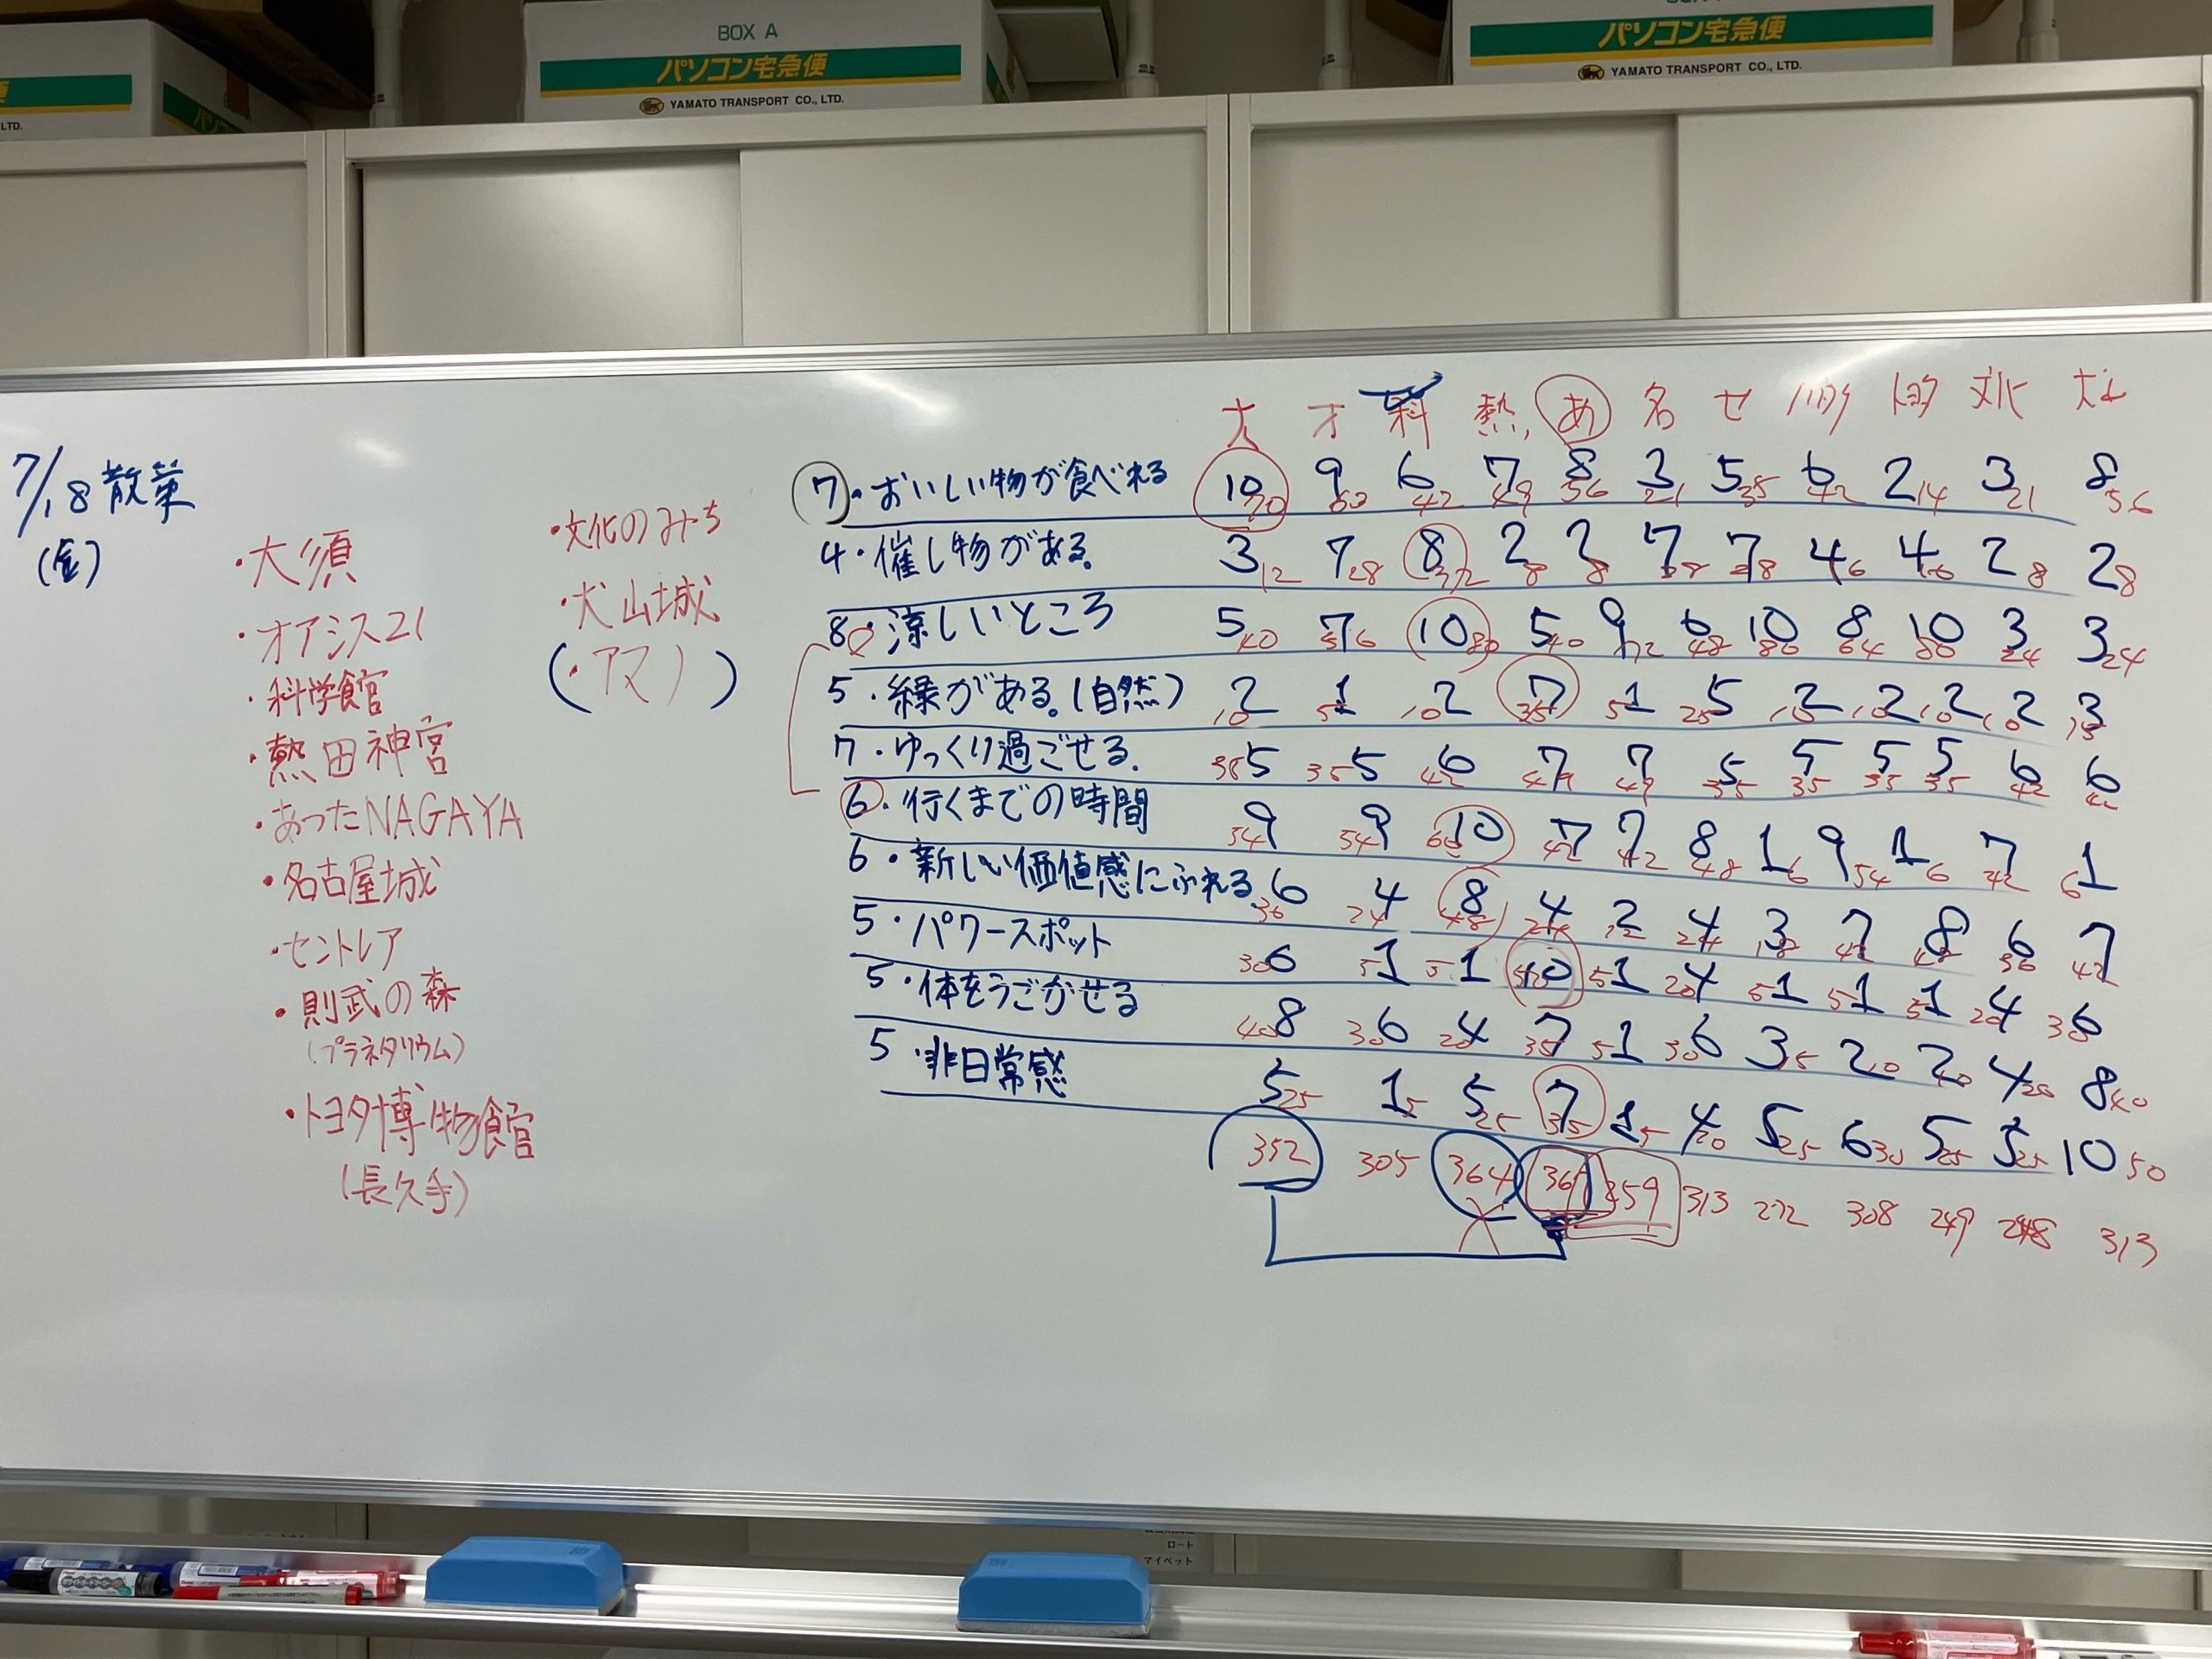 BOX A
パソコン宅急便
YAMATO TRANSPORT CO., LTD.
パソコン宅急便
YAMATO TRANSPORT CO., LTD.
LTD.
7/18 散策
(金)
・大須
・オアシス21
・科学館
・熱田神宮
・あつたNAGAYA
・名古屋城
・セントレア
・則武の森
(プラネタリウム)
・トヨタ博物館
(長久手)
・文化のみち
・犬山城
(・アマノ)
大 オ 科 熱 あ 名 セ 文化
7・おいしい物が食べれる 10 70 9 6 42 7 49 8 56 3 21 5 35 6 42 2 14 3 21 8 56
4・催し物がある。 3 12 7 28 8 32 2 8 2 8 7 28 7 28 4 16 4 16 2 8 2 8
8・涼しいところ 5 40 7 56 10 80 5 40 9 72 6 48 10 80 8 64 10 80 3 24 3 24
5・緑がある。(自然) 10 2 5 1 10 2 35 7 5 1 25 5 10 2 10 2 10 2 10 2 15 3
7・ゆっくり過ごせる。 35 5 35 5 42 6 49 7 49 7 35 5 35 5 35 5 35 5 42 6 42 6
6・行くまでの時間 54 9 54 9 60 10 42 7 42 7 48 8 1 6 9 54 1 6 7 42 6 1
6・新しい価値感にふれる。 36 6 24 4 48 8 24 4 12 2 24 4 18 3 42 7 48 8 36 6 42 7
5・パワースポット 30 6 5 1 5 1 50 10 5 1 20 4 5 1 5 1 5 1 20 4 30 6
5・体をうごかせる 40 8 30 6 20 4 35 7 5 1 30 6 3 15 2 10 2 10 4 20 8 40
5・非日常感 5 25 1 5 5 25 7 35 1 5 4 20 5 25 6 30 5 25 5 25 10 50
352 305 364 359 313 272 308 249 248 313
ロート
マイペット